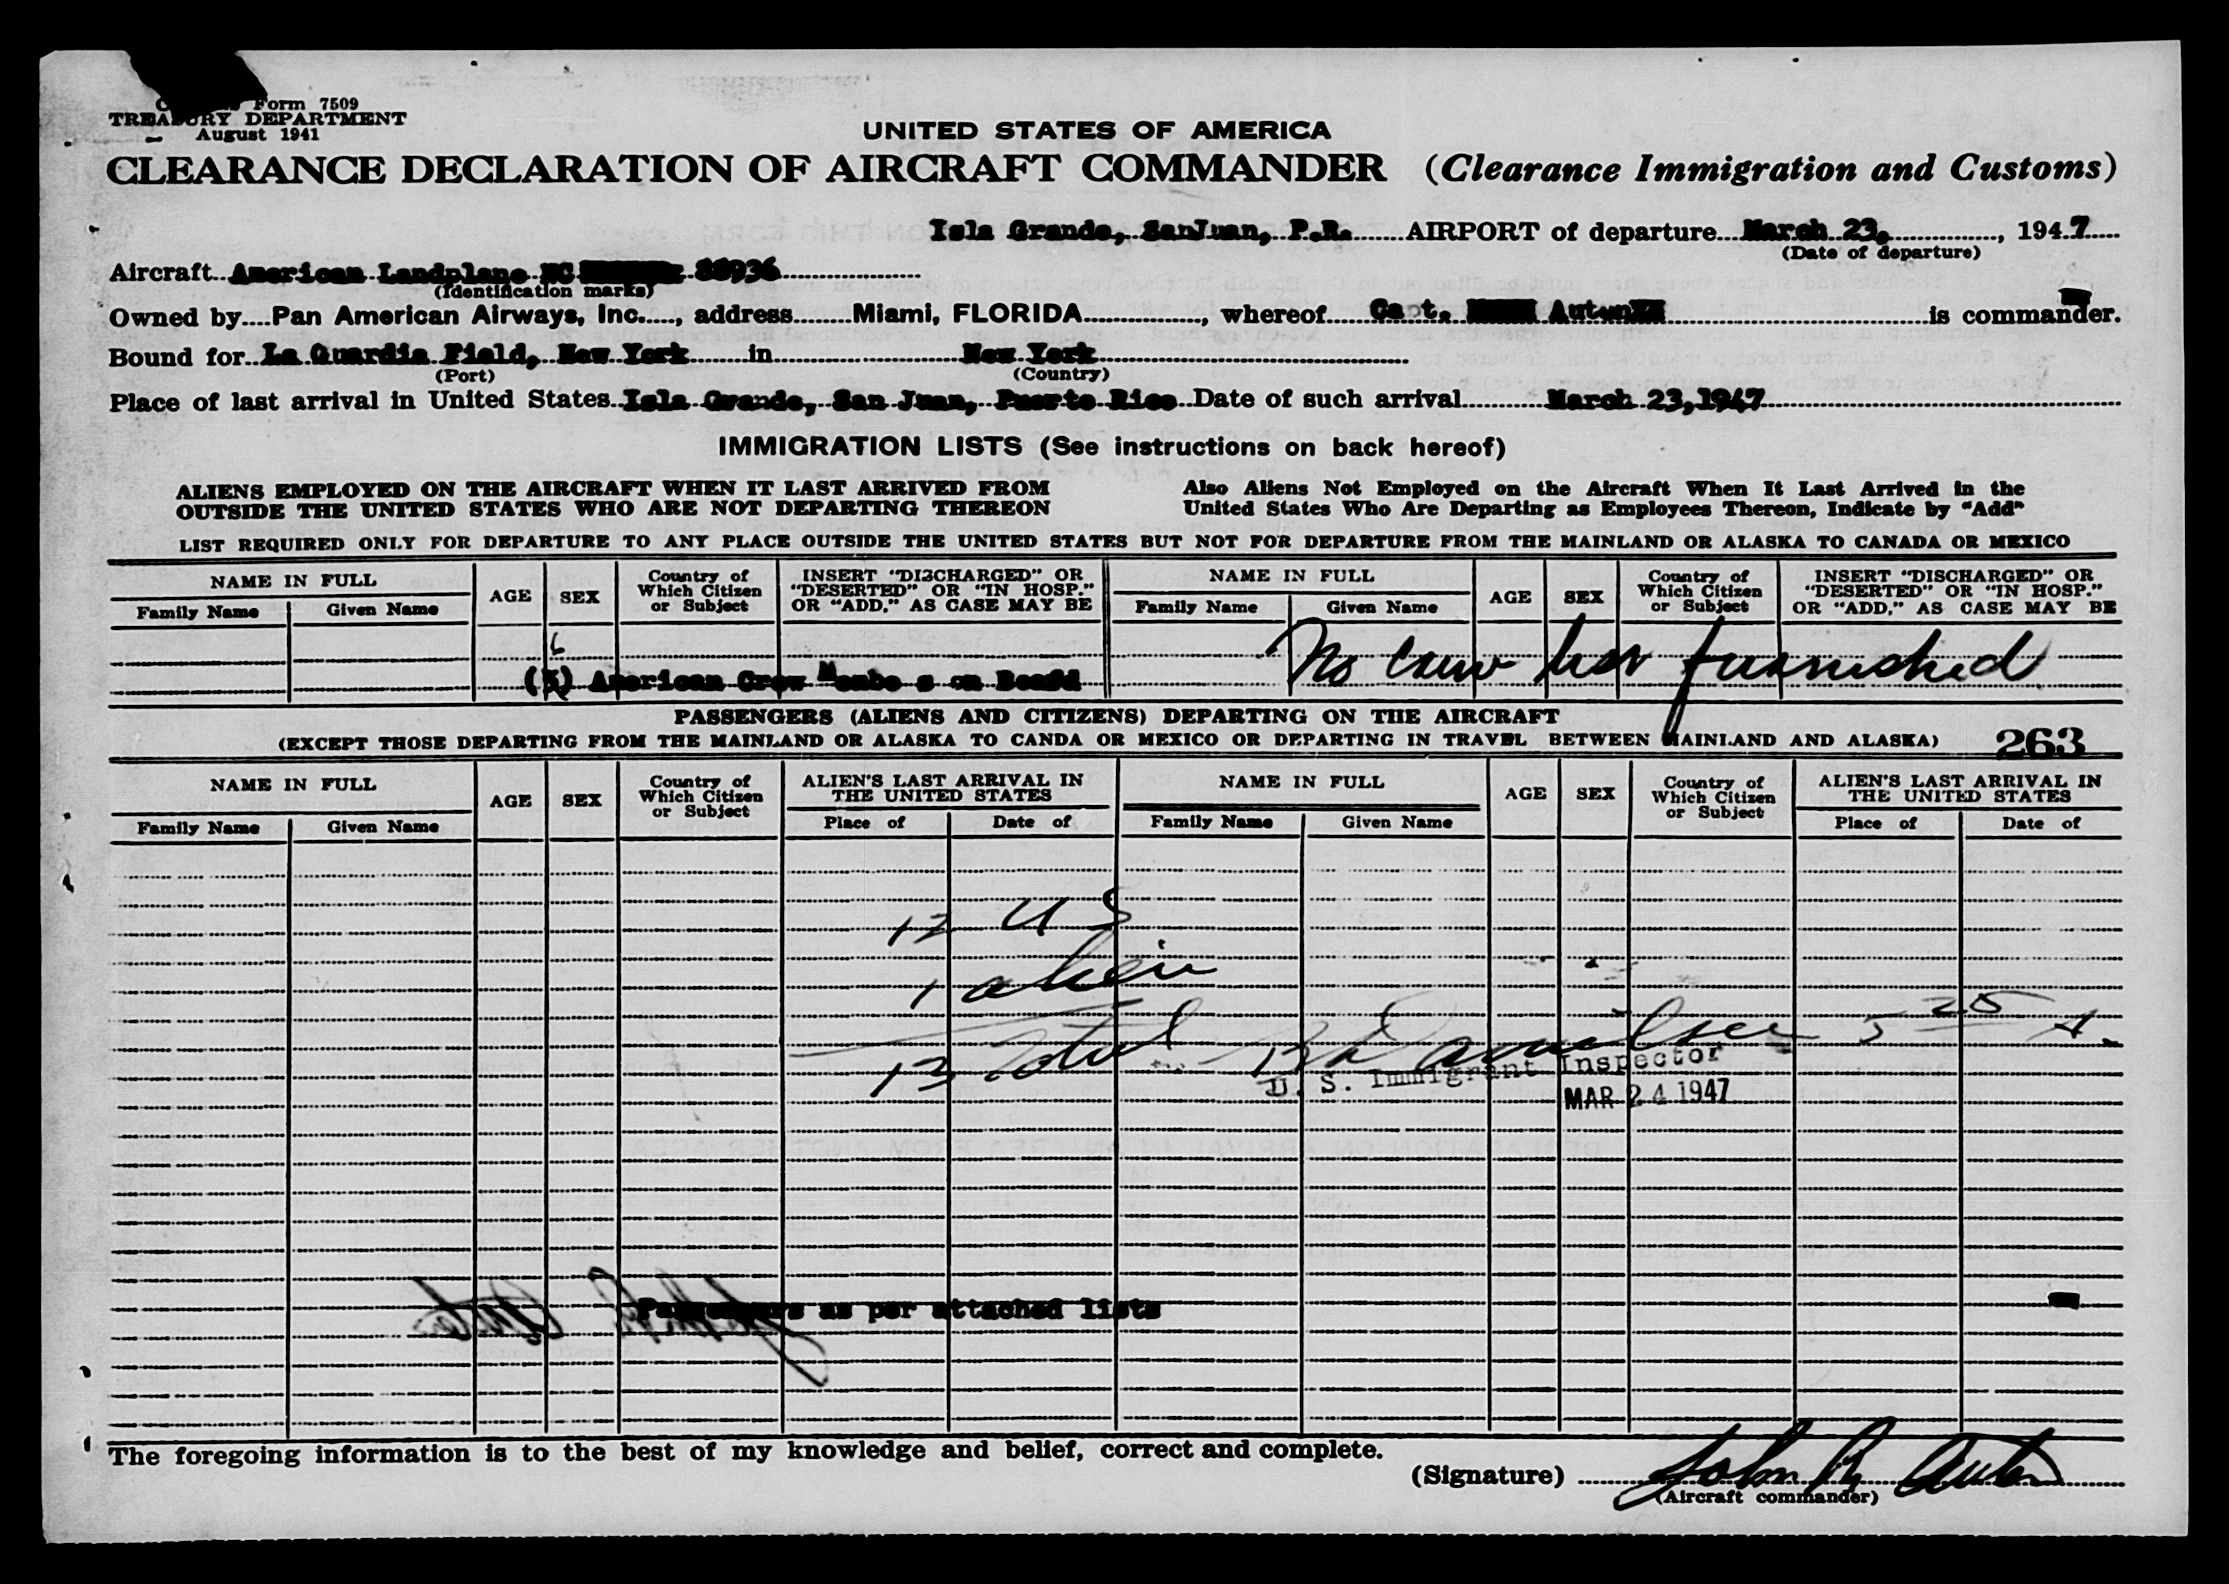 Form 7509
TREASURY DEPARTMENT
August 1941
UNITED STATES OF AMERICA
CLEARANCE DECLARATION OF AIRCRAFT COMMANDER (Clearance Immigration and Customs)
Isla Grande, SanJuan, P.R. AIRPORT of departure March 23, , 1947
(Date of departure)
Aircraft American Landplane NC 88936
(Identification marks)
Owned by Pan American Airways, Inc. , address Miami, FLORIDA , whereof Capt. Auten is commander.
Bound for La Guardia Field, New York in New York
(Port) (Country)
Place of last arrival in United States Isla Grande, San Juan, Puerto Rico Date of such arrival March 23,1947
IMMIGRATION LISTS (See instructions on back hereof)
ALIENS EMPLOYED ON THE AIRCRAFT WHEN IT LAST ARRIVED FROM Also Aliens Not Employed on the Aircraft When It Last Arrived in the
OUTSIDE THE UNITED STATES WHO ARE NOT DEPARTING THEREON United States Who Are Departing as Employees Thereon, Indicate by "Add"
LIST REQUIRED ONLY FOR DEPARTURE TO ANY PLACE OUTSIDE THE UNITED STATES BUT NOT FOR DEPARTURE FROM THE MAINLAND OR ALASKA TO CANADA OR MEXICO
NAME IN FULL AGE SEX Country of Which Citizen or Subject INSERT "DISCHARGED" OR "DESERTED" OR "IN HOSP." OR "ADD," AS CASE MAY BE NAME IN FULL AGE SEX Country of Which Citizen or Subject INSERT "DISCHARGED" OR "DESERTED" OR "IN HOSP." OR "ADD," AS CASE MAY BE
Family Name Given Name Family Name Given Name
6
(5) American Crew Membe s on Board No Crew list furnished
PASSENGERS (ALIENS AND CITIZENS) DEPARTING ON THE AIRCRAFT
(EXCEPT THOSE DEPARTING FROM THE MAINLAND OR ALASKA TO CANDA OR MEXICO OR DEPARTING IN TRAVEL BETWEEN MAINLAND AND ALASKA) 263
NAME IN FULL AGE SEX Country of Which Citizen or Subject ALIEN'S LAST ARRIVAL IN THE UNITED STATES NAME IN FULL AGE SEX Country of Which Citizen or Subject ALIEN'S LAST ARRIVAL IN THE UNITED STATES
Family Name Given Name Place of Date of Family Name Given Name Place of Date of
12 US
1 alien
13 Total 5 25 A.
U. S. Immigrant Inspector
MAR 24 1947
Passengers as per attached lists
The foregoing information is to the best of my knowledge and belief, correct and complete.
(Signature) John R Auten
(Aircraft commander)